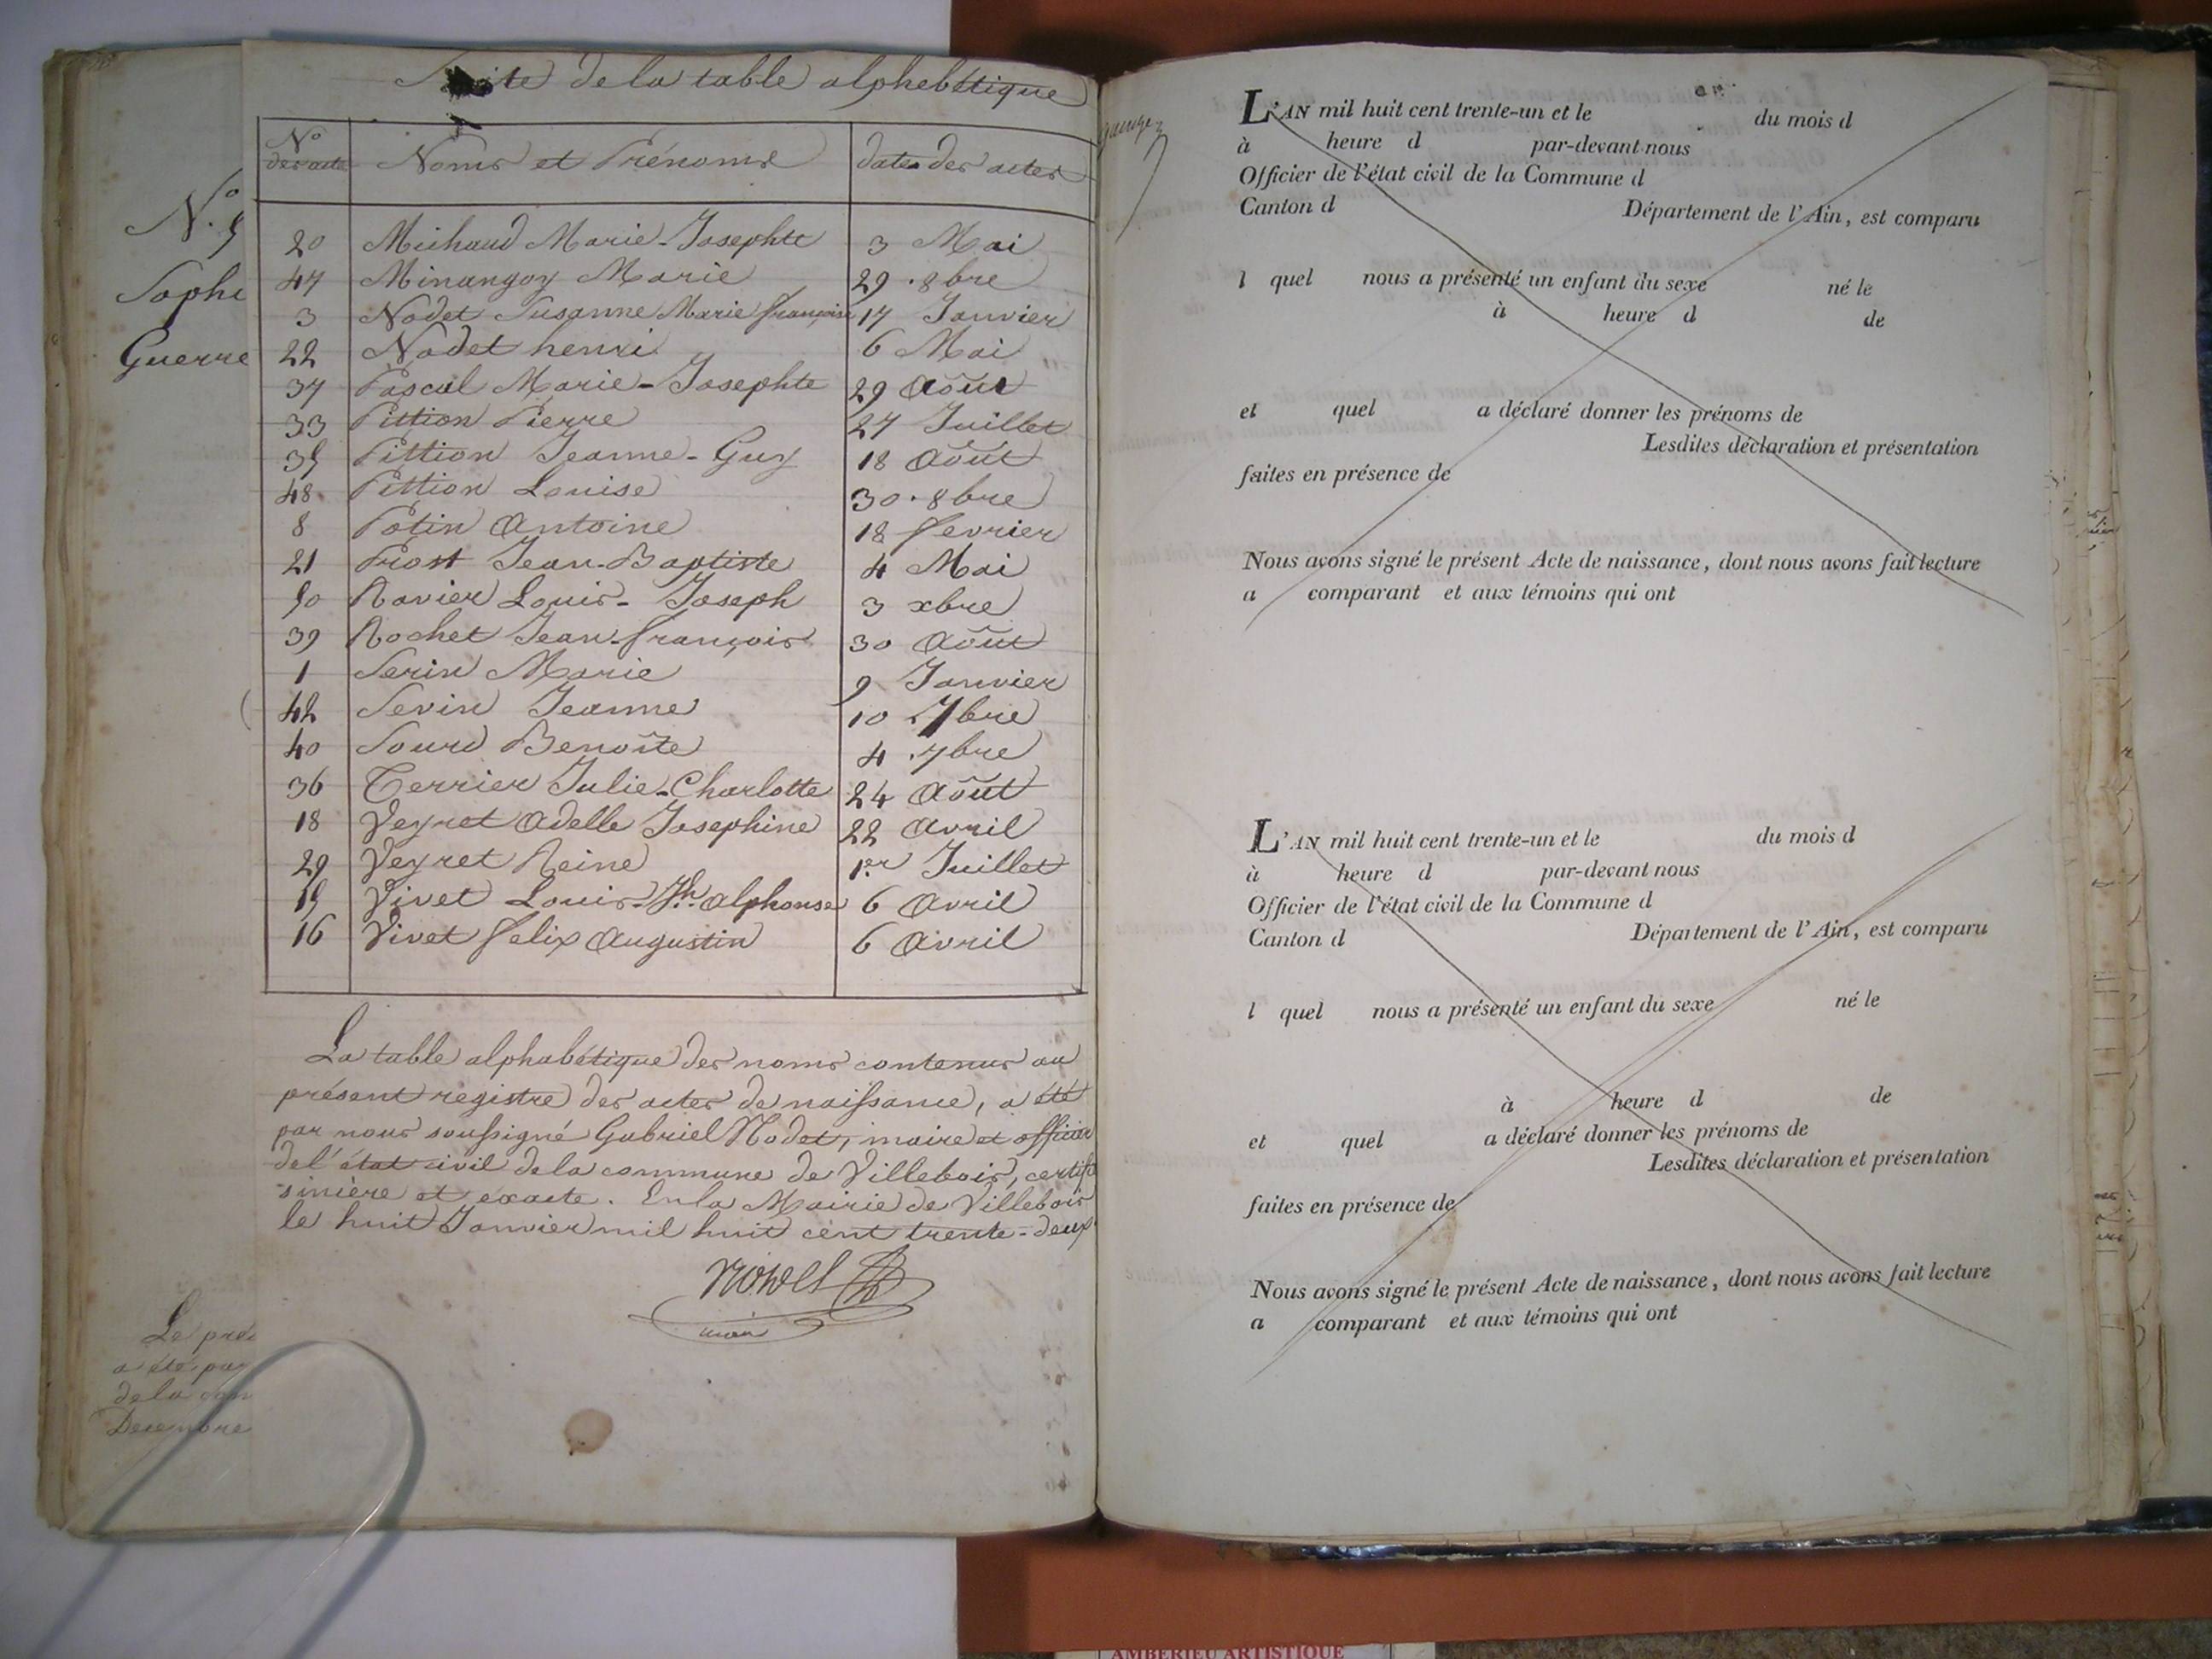 Suite de la table alphebétique
N.° des actes Noms et Prénoms dates des actes
20 Michaud Marie-Josephte 3 Mai
47 Minangoy Marie 29 .8bre
3 Nodet Susanne Marie françoise 17 Janvier
22 Nodet henri 6 Mai
37 Pascal Marie-Josephte 29 Août
33 Pittion Pierre 27 Juillet
35 Pittion Jeanne-Guy 18 Août
48 Pittion Louise 30 .8bre
8 Potin Antoine 18 fevrier
21 Prost Jean-Baptiste 4 Mai
50 Ravier Louis-Joseph 3 xbre
39 Rochet Jean-françois 30 Août
1 Serin Marie 9 Janvier
42 Sevin Jeanne 10 7bre
40 Sourd Benoîte 4 .7bre
36 Terrier Julie-Charlotte 24 Août
18 Veyret Adelle Josephine 22 Avril
29 Veyret Reine 1.er Juillet
15 Vivet Louis-Jh. alphonse 6 Avril
16 Vivet felix Augustin 6 Avril
La table alphabétique des noms contenus au
présent registre des actes de naissance, a été
par nous soussigné Gabriel Nodet, maire et officier
de l'état civil de la commune de Villebois, certif
sinière et exacte. En la Mairie de Villebois
le huit Janvier mil huit cent trente-deux
Nodet
N.° 5
Sophi
Guerre
Le pré
a été par
de la com
Decembre
L'AN mil huit cent trente-un et le du mois d
à heure d par-devant nous
Officier de l'état civil de la Commune d
Canton d Département de l'Ain, est comparu
l quel nous a présenté un enfant du sexe né le
à heure d de
et quel a déclaré donner les prénoms de
Lesdites déclaration et présentation
faites en présence de
Nous avons signé le présent Acte de naissance, dont nous avons fait lecture
a comparant et aux témoins qui ont
L'AN mil huit cent trente-un et le du mois d
à heure d par-devant nous
Officier de l'état civil de la Commune d
Canton d Département de l'Ain, est comparu
l quel nous a présenté un enfant du sexe né le
à heure d de
et quel a déclaré donner les prénoms de
Lesdites déclaration et présentation
faites en présence de
Nous avons signé le présent Acte de naissance, dont nous avons fait lecture
a comparant et aux témoins qui ont
AMBERIEU ARTISTIQUE